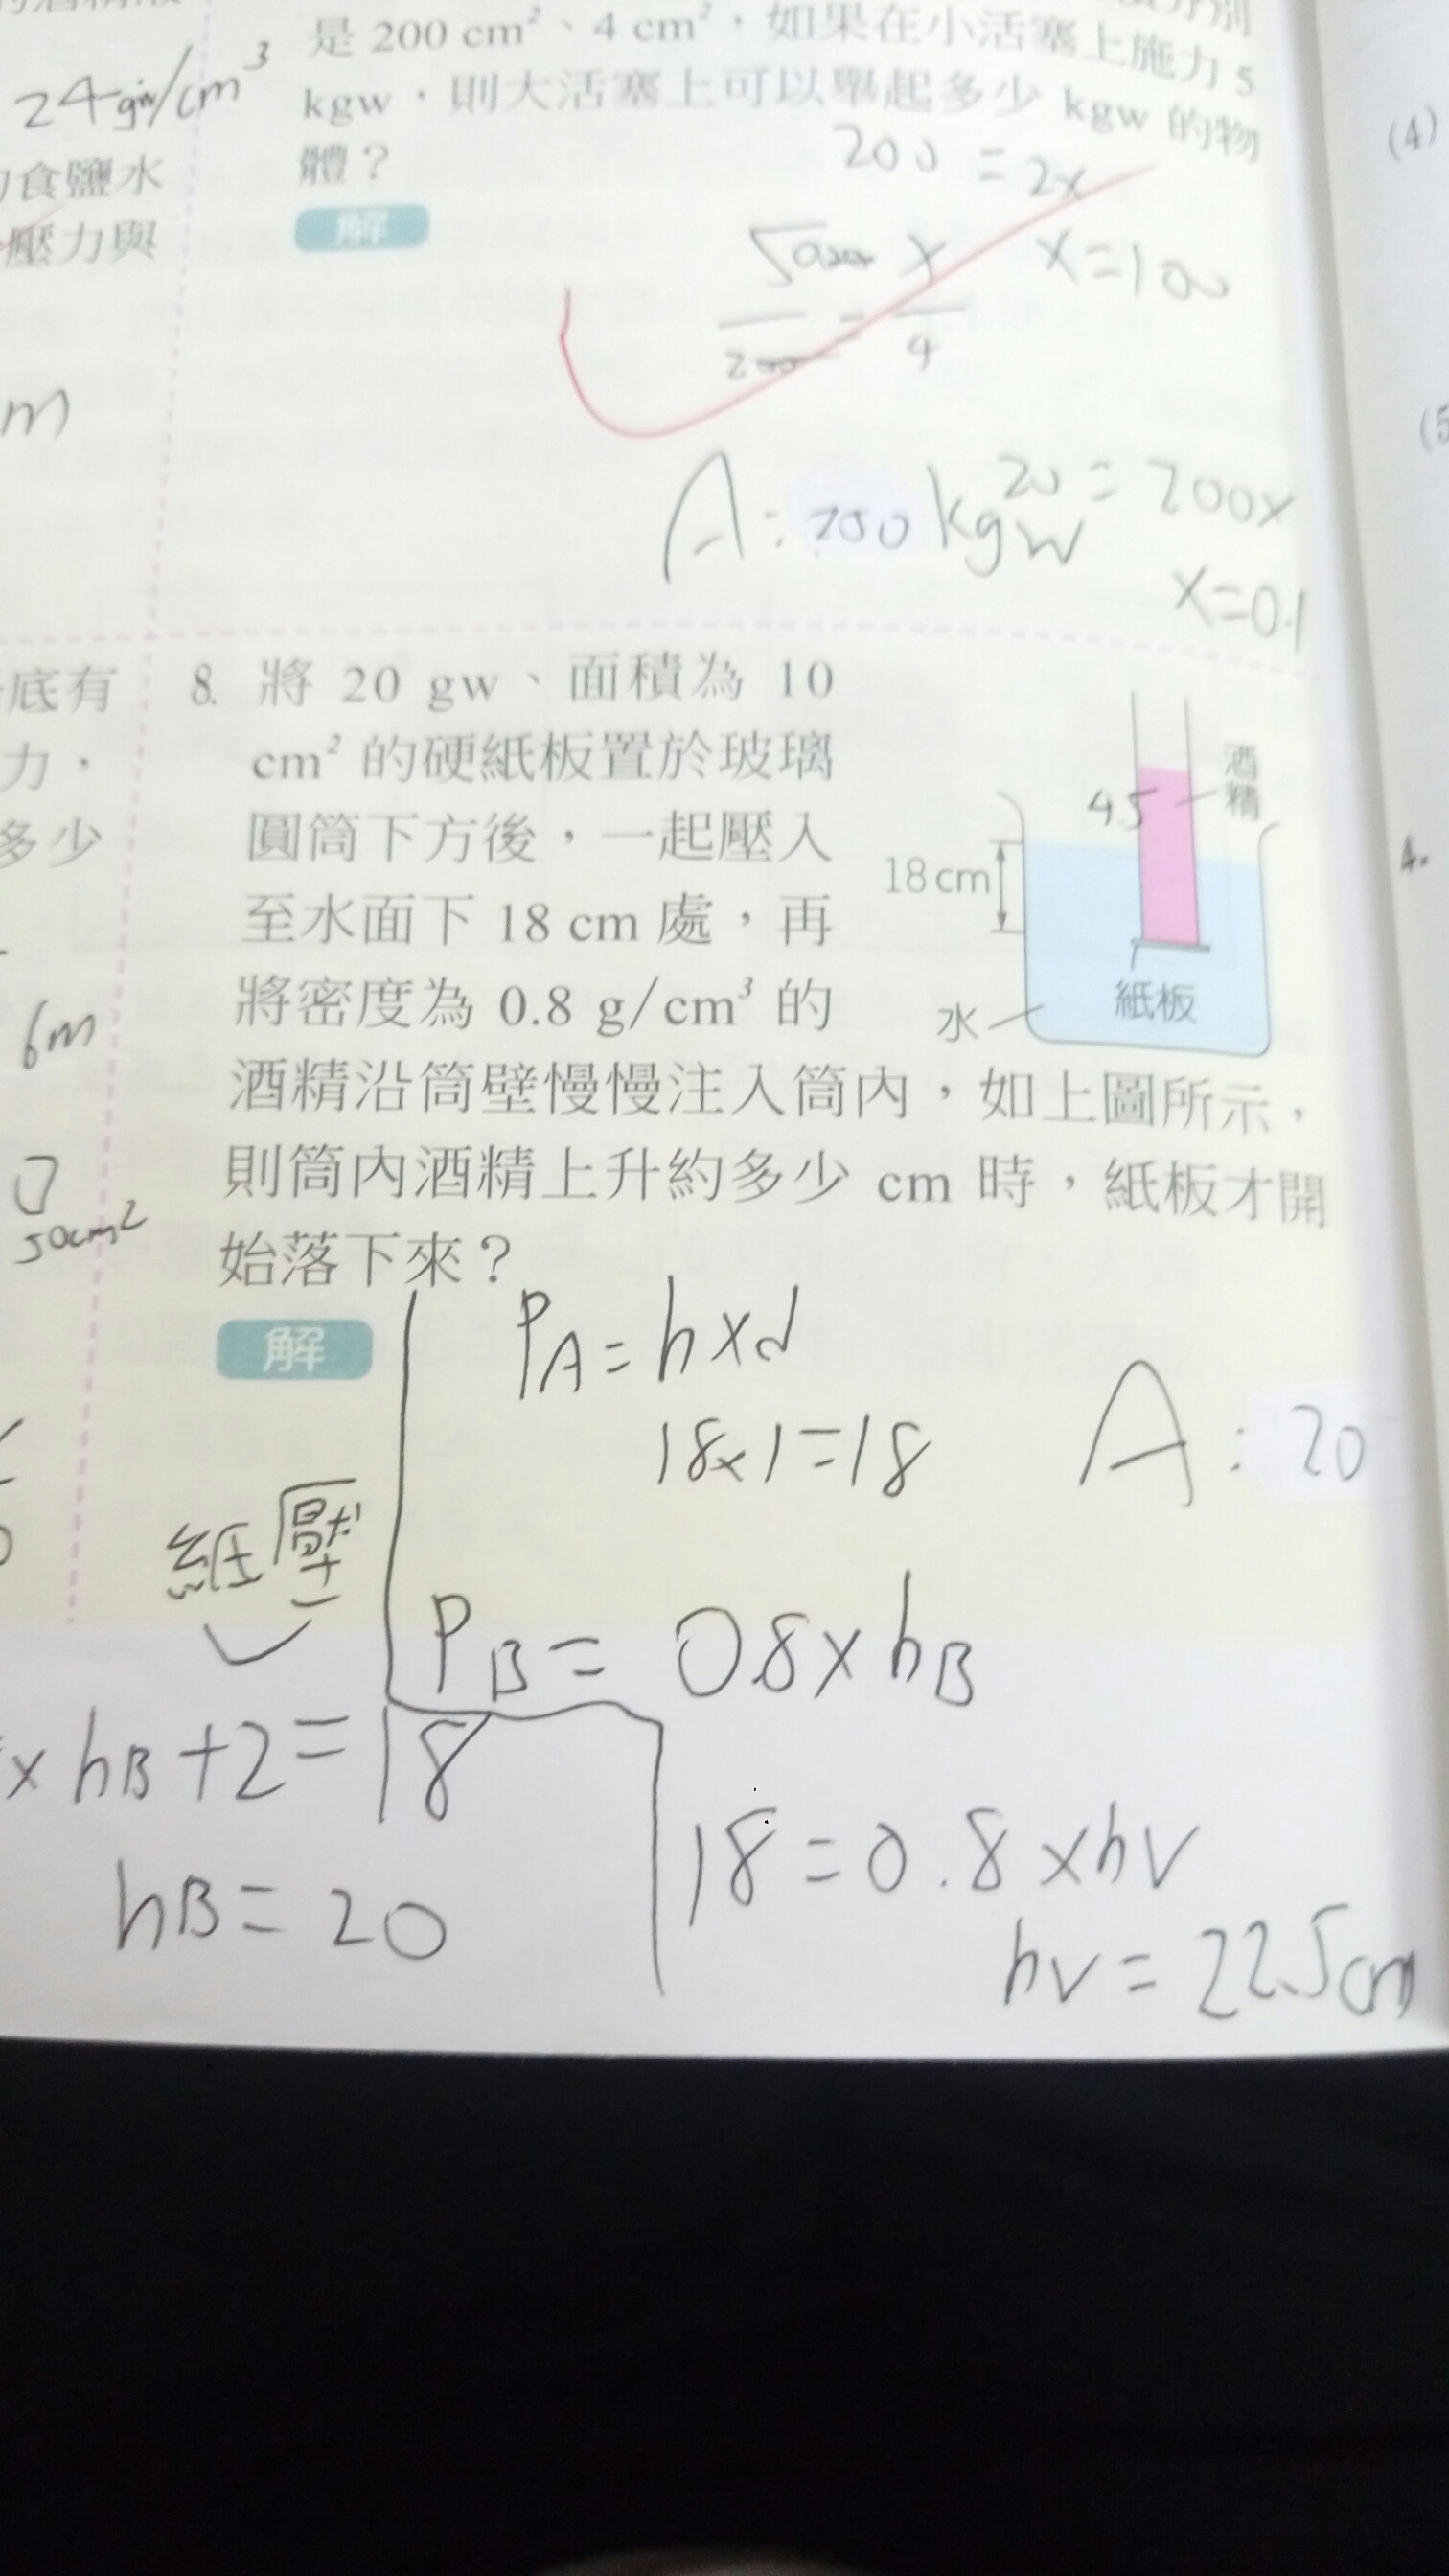 24gw/cm³
食鹽水
壓力與
m
底有
力，
多少
6m
50cm²
是 200 cm²、4 cm²，如果在小活塞上施力 5
kgw，則大活塞上可以舉起多少 kgw 的物
體？
解
200 = 2x
x=100
x
200 = 4
A: 250 kgw
20 = 200x
x=0.1
8. 將 20 gw、面積為 10
cm² 的硬紙板置於玻璃
圓筒下方後，一起壓入
至水面下 18 cm 處，再
將密度為 0.8 g/cm³ 的
酒精沿筒壁慢慢注入筒內，如上圖所示，
則筒內酒精上升約多少 cm 時，紙板才開
始落下來？
酒精
45
18 cm
水
紙板
解
PA = h×d
18×1=18
A: 20
紙壓
PB = 0.8×hB
×hB+2=18
hB=20
18=0.8×hv
hv=22.5cm
(4)
(5
4.